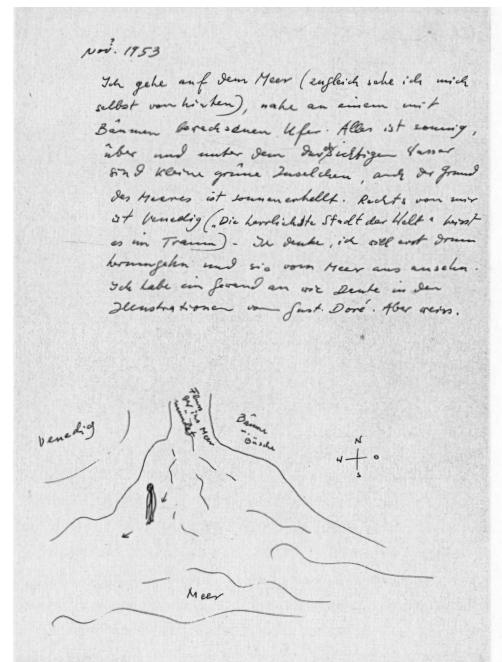 Nov. 1953
Ich gehe auf dem Meer (zugleich sehe ich mich
selbst von hinten), nahe an einem mit
Bäumen bewachsenen Ufer. Alles ist sonnig,
über und unter dem durchsichtigen Wasser
sind kleine grüne Inselchen, auch der Grund
des Meeres ist sonnenerhellt. Rechts von mir
ist Venedig („Die herrlichste Stadt der Welt“ heisst
es im Traum). - Ich denke, ich will erst drum
herumgehn und sie vom Meer aus ansehn.
Ich habe ein Gewand an wie Dante in den
Illustrationen von Gust. Doré. Aber weiss.
Venedig
Fluss
der ins Meer
mündet
Bäume
Büsche
N
W O
S
Meer